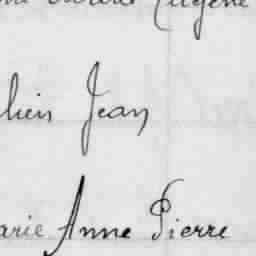 Eugène
lien Jean
arie Anne Pierre